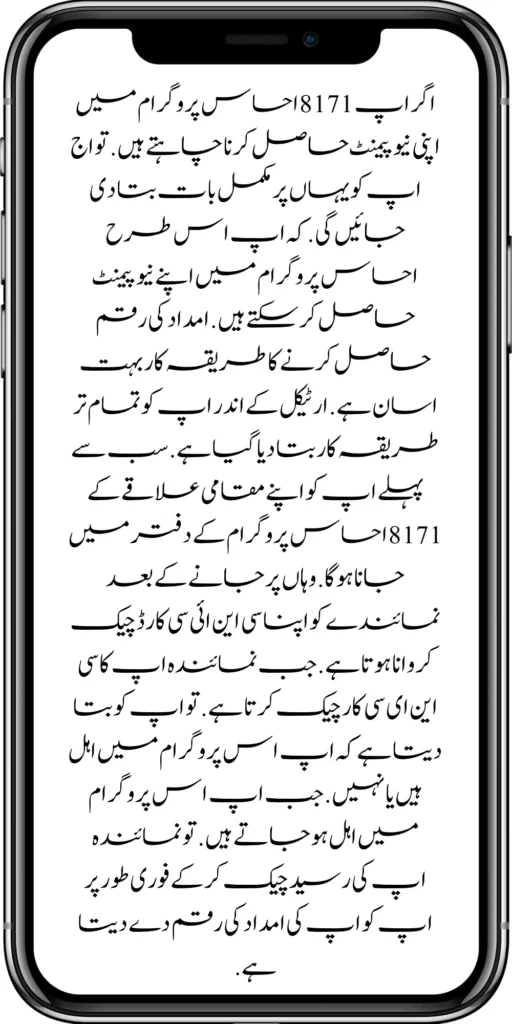 اگر اپ 8171 احساس پروگرام میں
اپنی نیو پیمنٹ حاصل کرنا چاہتے ہیں. تو اج
اپ کو یہاں پر مکمل بات بتا دی
جائیں گی. کہ اپ اس طرح
احساس پروگرام میں اپنے نیو پیمنٹ
حاصل کر سکتے ہیں. امداد کی رقم
حاصل کرنے کا طریقہ کار بہت
اسان ہے. ارٹیکل کے اندر اپ کو تمام تر
طریقہ کار بتا دیا گیا ہے. سب سے
پہلے اپ کو اپنے مقامی علاقے کے
8171 احساس پروگرام کے دفتر میں
جانا ہوگا. وہاں پر جانے کے بعد
نمائندے کو اپنا سی این ائی سی کارڈ چیک
کروانا ہوتا ہے. جب نمائندہ اپ کا سی
این ای سی کار چیک کرتا ہے. تو اپ کو بتا
دیتا ہے کہ اپ اس پروگرام میں اہل
ہیں یا نہیں. جب اپ اس پروگرام
میں اہل ہو جاتے ہیں. تو نمائندہ
اپ کی رسید چیک کر کے فوری طور پر
اپ کو اپ کی امداد کی رقم دے دیتا
ہے.